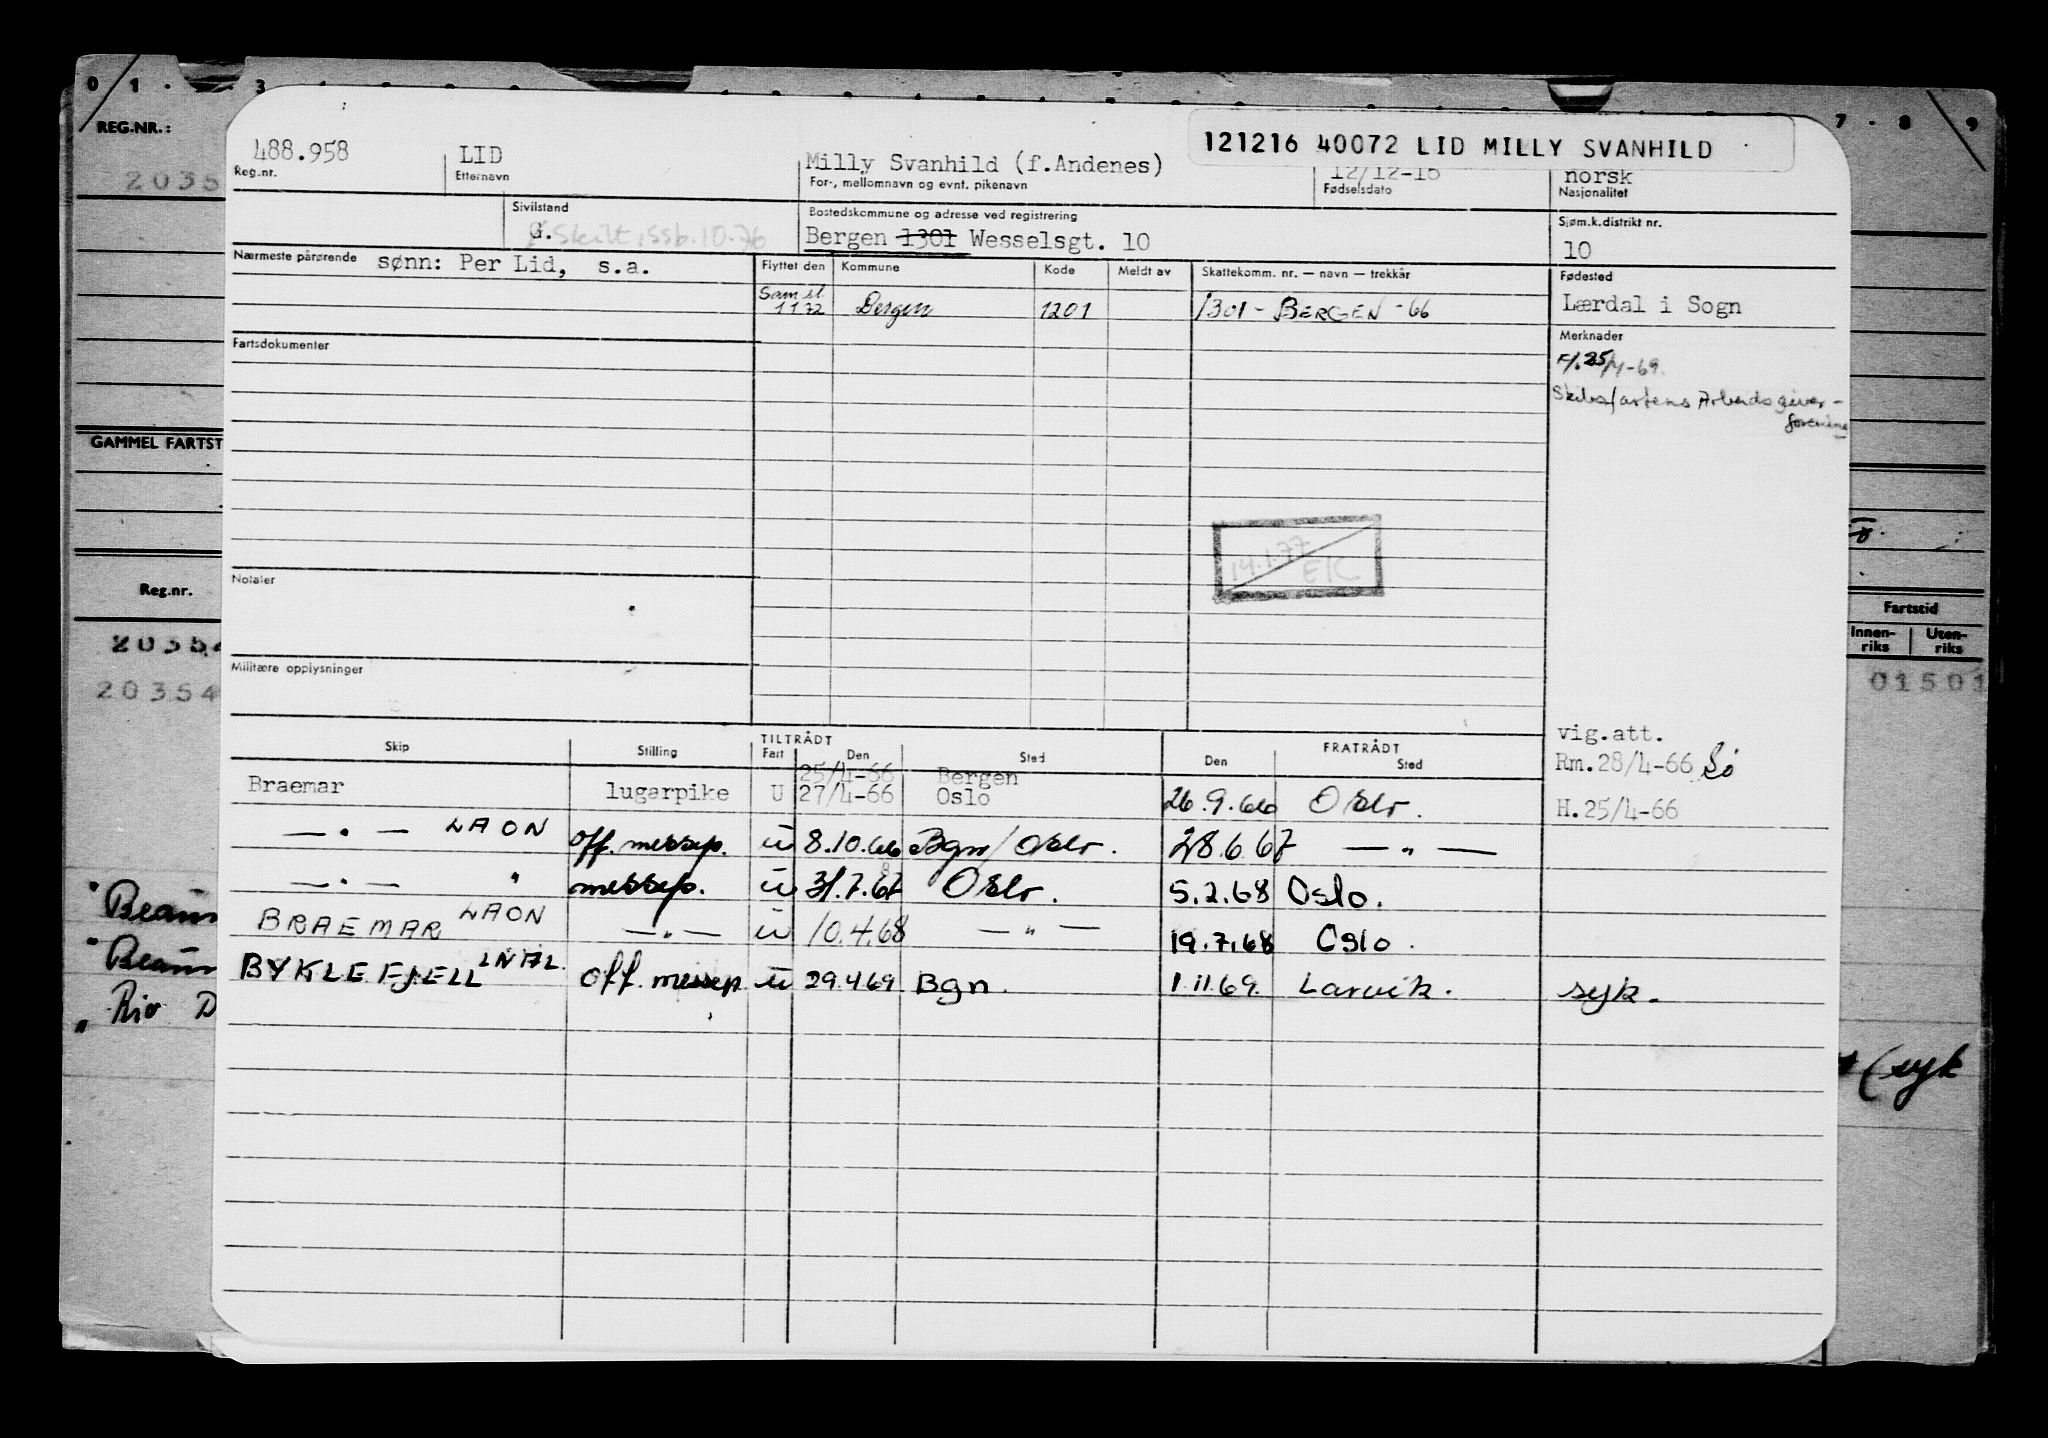 0 1 3
7 - 8 9
REG.NR.:
2035
GAMMEL FARTST
Reg.nr.
20354
20354
Fartstid
Innen-riks Uten-riks
01501
Rio D
(syk
121216 40072 LID MILLY SVANHILD
488.958 LID Milly Svanhild (f.Andenes) 12/12-16 norsk
Reg.nr. Etternavn For-, mellomnavn og evnt. pikenavn Fødselsdato Nasjonalitet
Sivilstand Bostedskommune og adresse ved registrering Sjøm.k.distrikt nr.
G. Skilt, ssb. 10.76 Bergen 1301 Wesselsgt. 10 10
Nærmeste pårørende sønn: Per Lid, s.a. Flyttet den Kommune Kode Meldt av Skattekomm. nr. — navn — trekkår Fødested
Sam.sl. 1 1 72 Bergen 1201 1301 - BERGEN -66 Lærdal i Sogn
Fartsdokumenter Merknader
F/. 25/4-69.
Skibsfartens Arbeidsgiver-
forening
14.1.77 EK
Notater
Militære opplysninger
vig.att.
Rm.28/4-66 Sö
H.25/4-66
TILTRÅDT FRATRÅDT
Skip Stilling Fart Den Sted Den Sted
25/4-66 Bergen
Braemar lugarpike U 27/4-66 Oslo 26.9.66 Oslo.
— " — LAON off. messep. u 8.10.66 Bgn/Oslo. 28.6.67 — " —
— " — " messep. u 31.7.67 8 Oslo. 5.2.68 Oslo.
BRAEMAR LAON — " — u 10.4.68 — " — 19.7.68 Oslo.
BYKLEFJELL off. messep u 29.4.69 Bgn. 1.11.69. Larvik. syk.